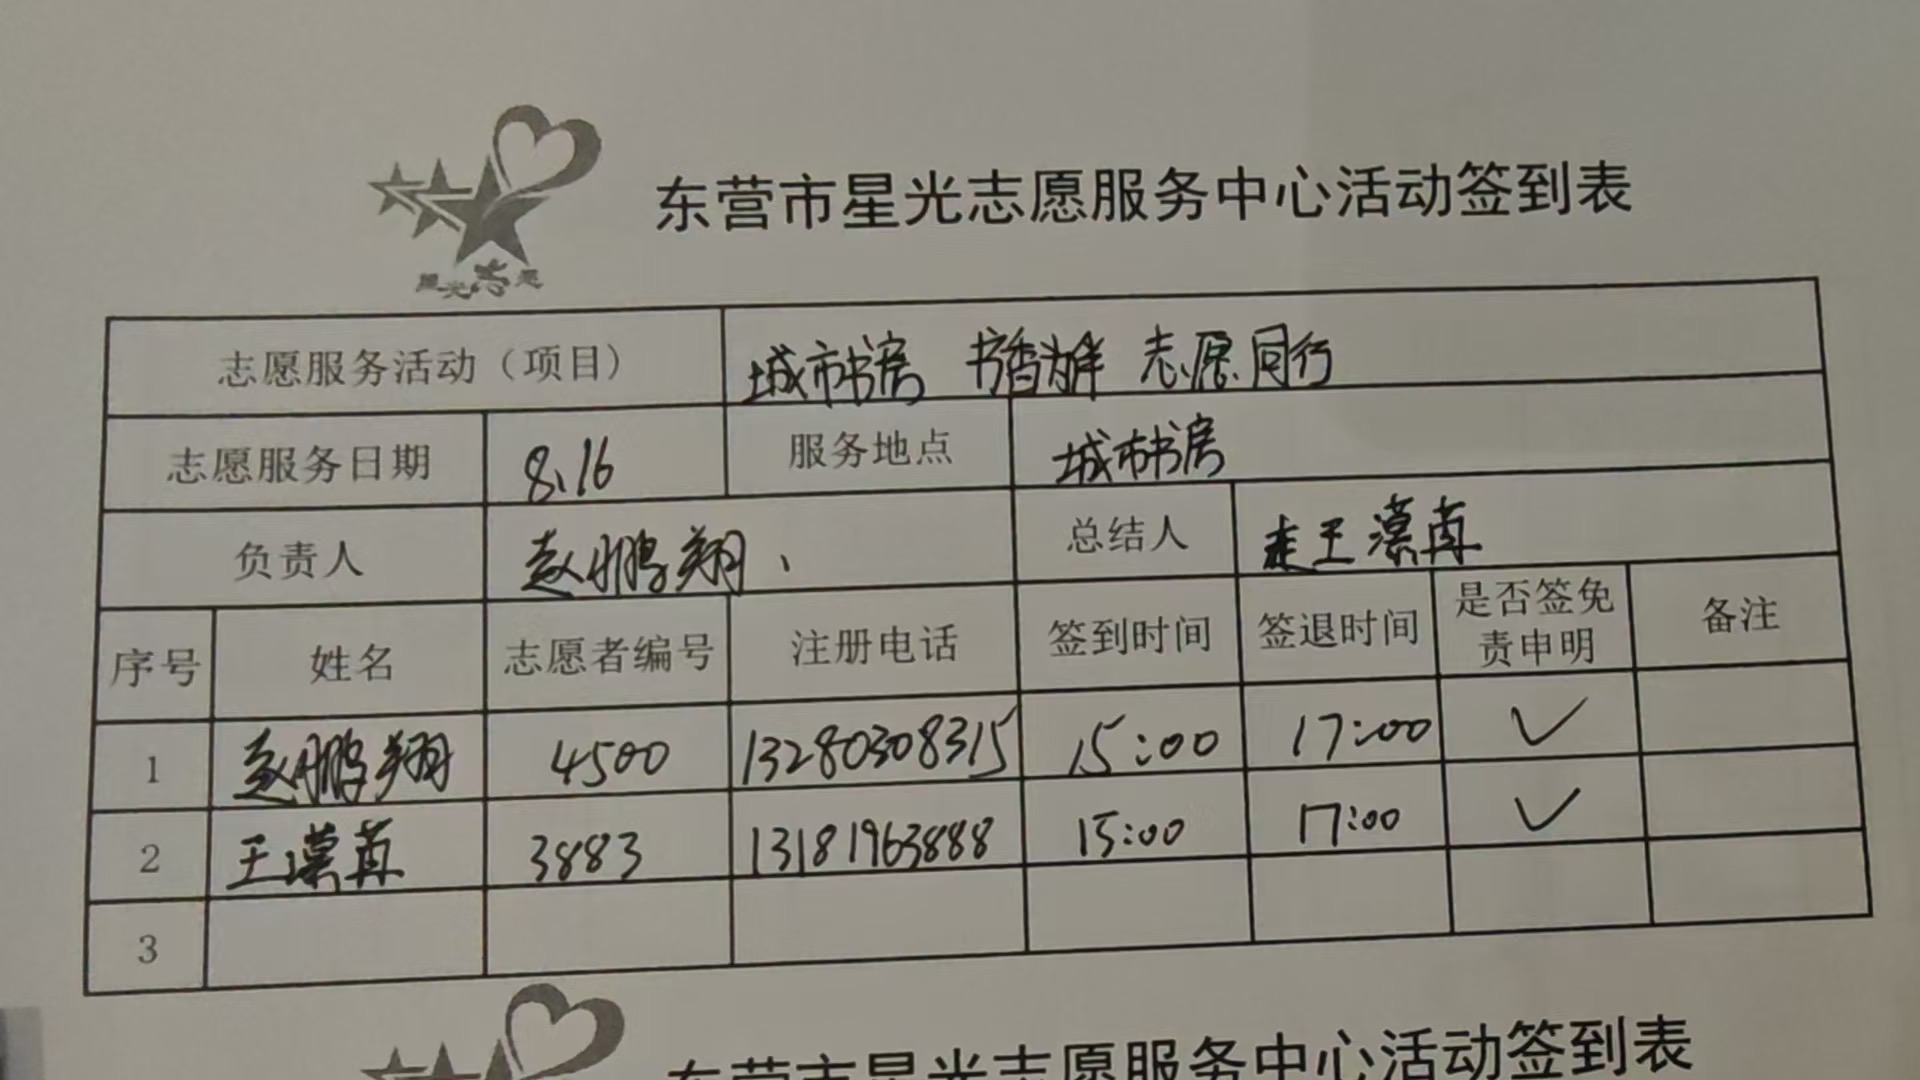 东营市星光志愿服务中心活动签到表
星光志愿
志愿服务活动（项目） 城市书房 书香为伴 志愿同行
志愿服务日期 8.16 服务地点 城市书房
负责人 赵鹏翔 总结人 王漠苒
序号 姓名 志愿者编号 注册电话 签到时间 签退时间 是否签免责申明 备注
1 赵鹏翔 4500 13280308315 15:00 17:00 ✓
2 王漠苒 3883 13181963888 15:00 17:00 ✓
3
东营市星光志愿服务中心活动签到表